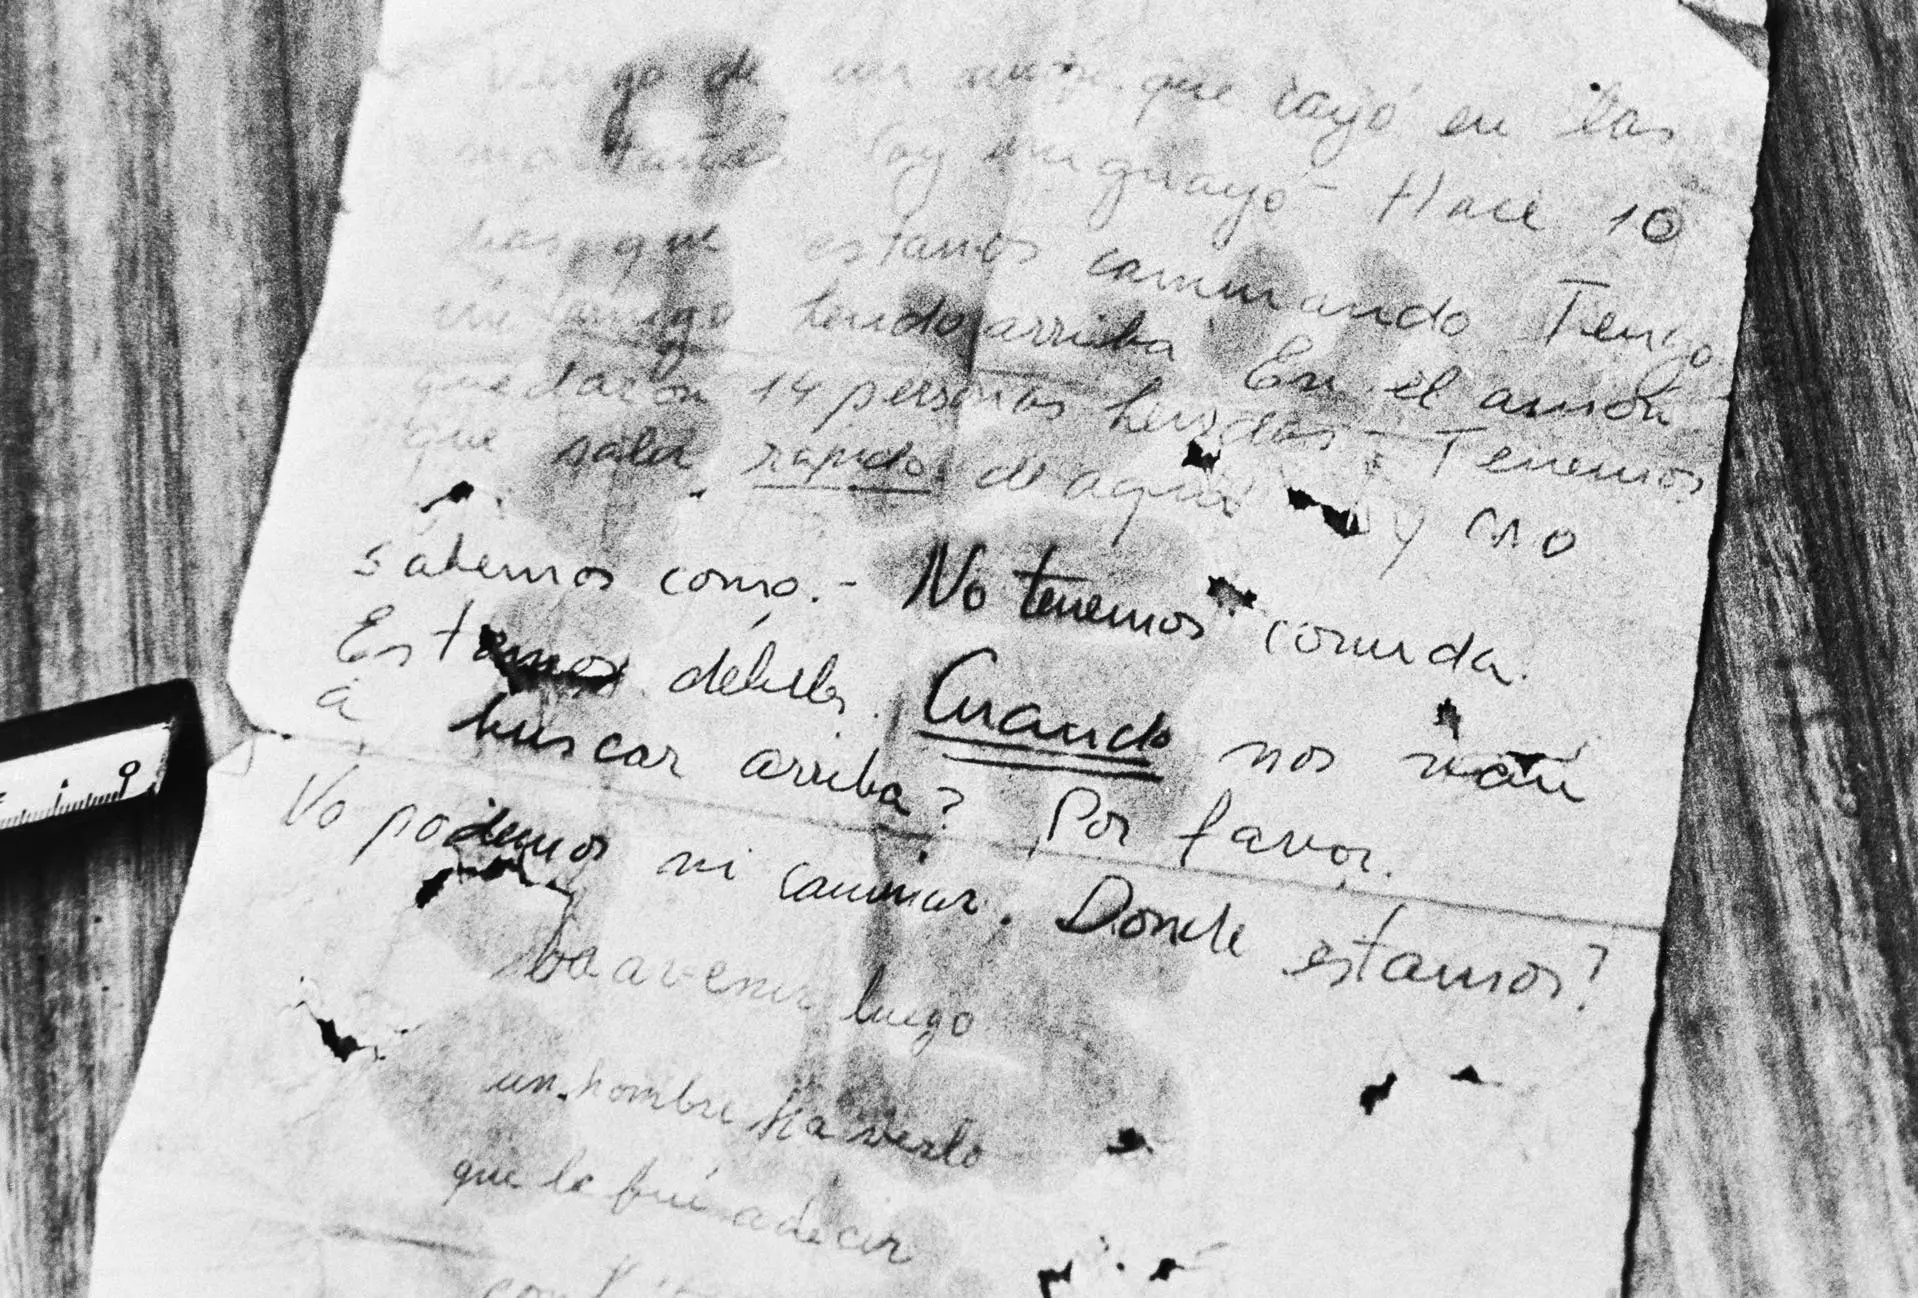 Vengo de un avión que cayó en las
montañas. Soy uruguayo - Hace 10
dias que estamos caminando Tengo
un amigo herido arriba. En el avión
quedaron 14 personas heridas - Tenemos
que salir rapido de aqui y no
sabemos como. - No tenemos comida.
Estamos débiles. Cuando nos van
a buscar arriba? Por favor.
No podemos ni caminar. Donde estamos?
ba avenir luego
un hombre ha verlo
que le fué a decir